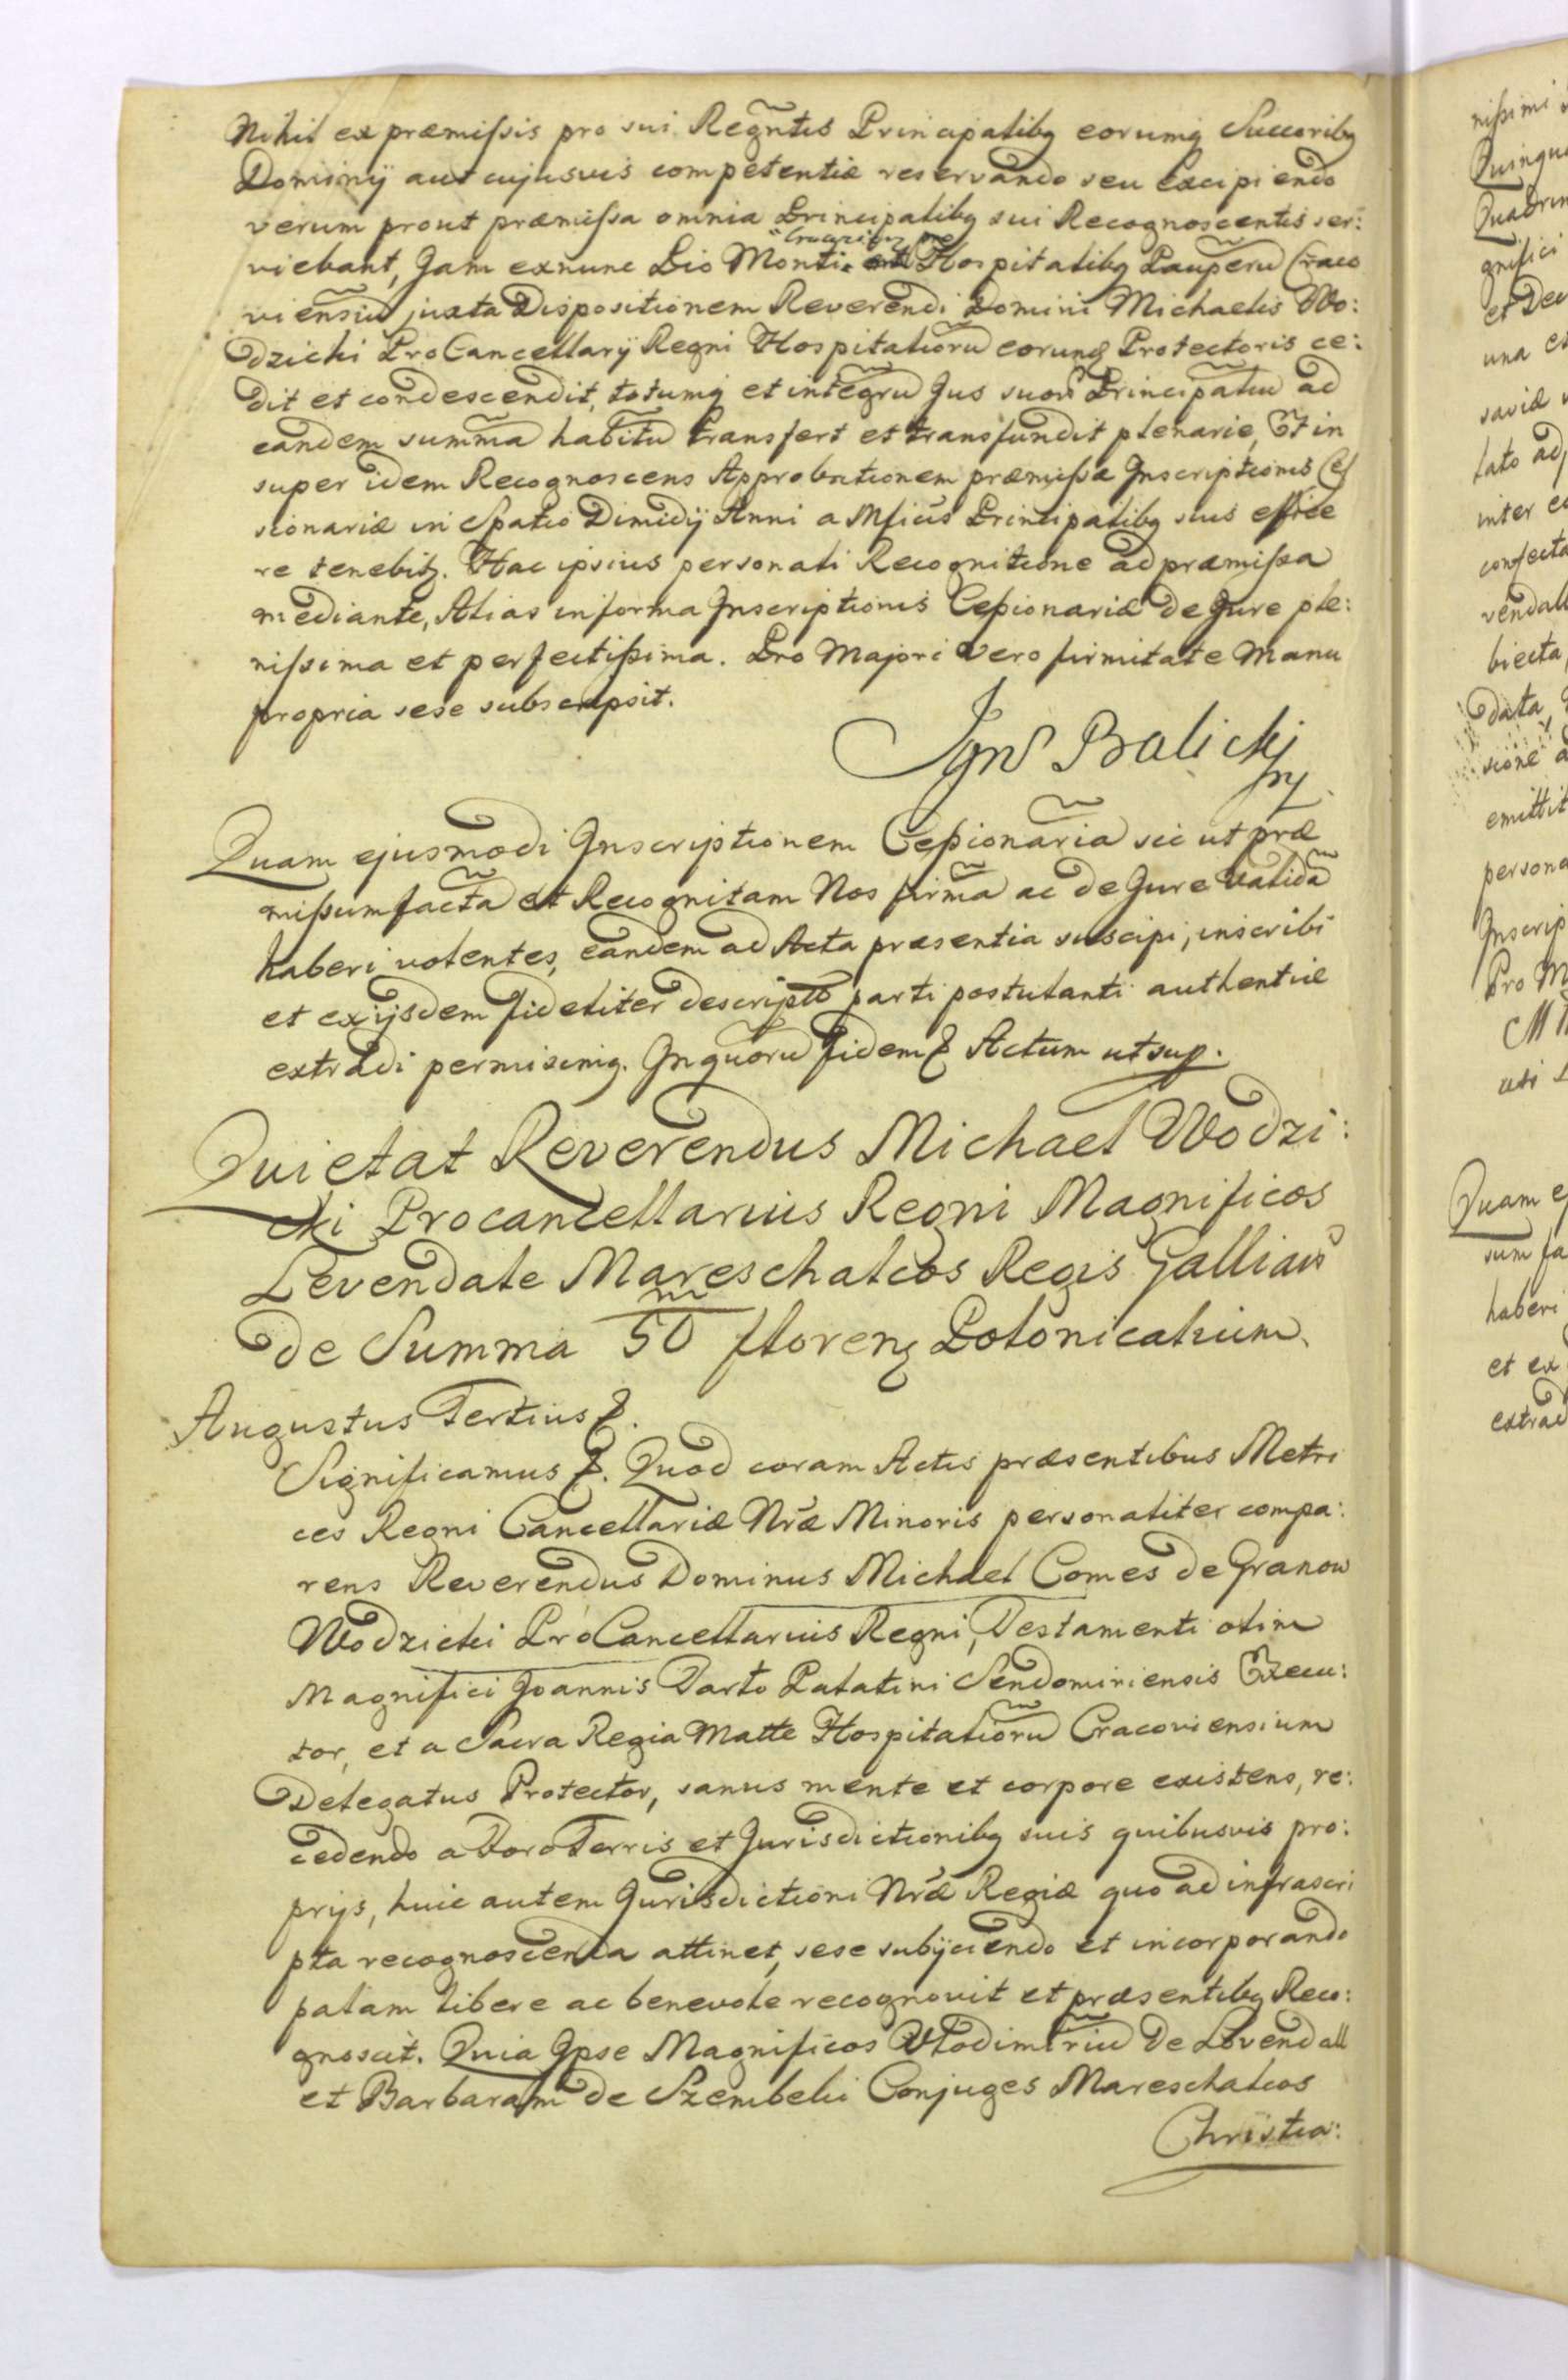 Nihil ex præmissis pro sui Regntis Principalibq eorumq Succoribq
Dominij aut cujusvis competentiæ reservando seu Excipiendo
verum prout præmissa omnia Principalibq sui Recognoscentis ser:
viebant, Jam exnunc Pio Monti Hospitalibq Pauperu Craco
viensiu juxta Dispositionem Reverendi Domini Michaelis Wo:
dzicki ProCancellarij Regni Hospitalioru eorunq Protectoris ce:
dit et condescendit, totumq et integru Jus suor Principaliu ad
eandem summa habitu transfert et transfundit plenarie, Et in
super idem Recognoscens Approbationem præmissæ Inscriptionis Ces
sionariæ in Spatio Dimidij Anni a Mficis Principalibq suis effice
re tenebitq. Hac ipsius personali Recognitione ad præmissa
mediante, Alias in forma Inscriptionis Cessionariæ de Jure ple:
nissima et perfectissima. Pro Majori vero firmitate Manu
propria sese subscripsit.
Ign Balicki
Quam ejusmodi Inscriptionem Cessionaria sic ut præ
missum facta et Recognitam Nos firma ac de Jure valida
haberi volentes, eandem ad Acta præsentia suscipi, inscribi
et ex ijsdem fideliter descripto parti postulanti authentice
extradi permisimq. In quoru fidem Actum ut sup.
Quietat Reverendus Michael Wodzi:
cki Procancellarius Regni Magnificos
Levendale Mareschalcos Regis Galliar
de Summa 50 florenq Polonicalium
Augustus Tertius
Significamus. Quod coram Actis præsentibus Metri
ces Regni Cancellariæ Nræ Minoris personaliter compa:
rens Reverendus Dominus Michael Comes de Granow
Wodzicki ProCancellarius Regni, Testamenti olim
Magnifici Joannis Tarlo Palatini Sendomiriensis Execu:
tor, et a Sacra Regia Matte Hospitalioru Cracoviensium
Delegatus Protector, sanus mente et corpore existens, re:
cedendo a Foro Terris et Jurisdictionibq suis quibusvis pro:
prijs, huic autem Jurisdictioni Nræ Regiæ quo ad infrascri
pta recognoscenda attinet, sese subijciendo et incorporando
palam libere ac benevole recognovit et præsentibq Reco:
gnoscit. Quia Ipse Magnificos Wlodimiriu De Lovendall
et Barbaram de Szembeki Conjuges Mareschalcos
Christia: